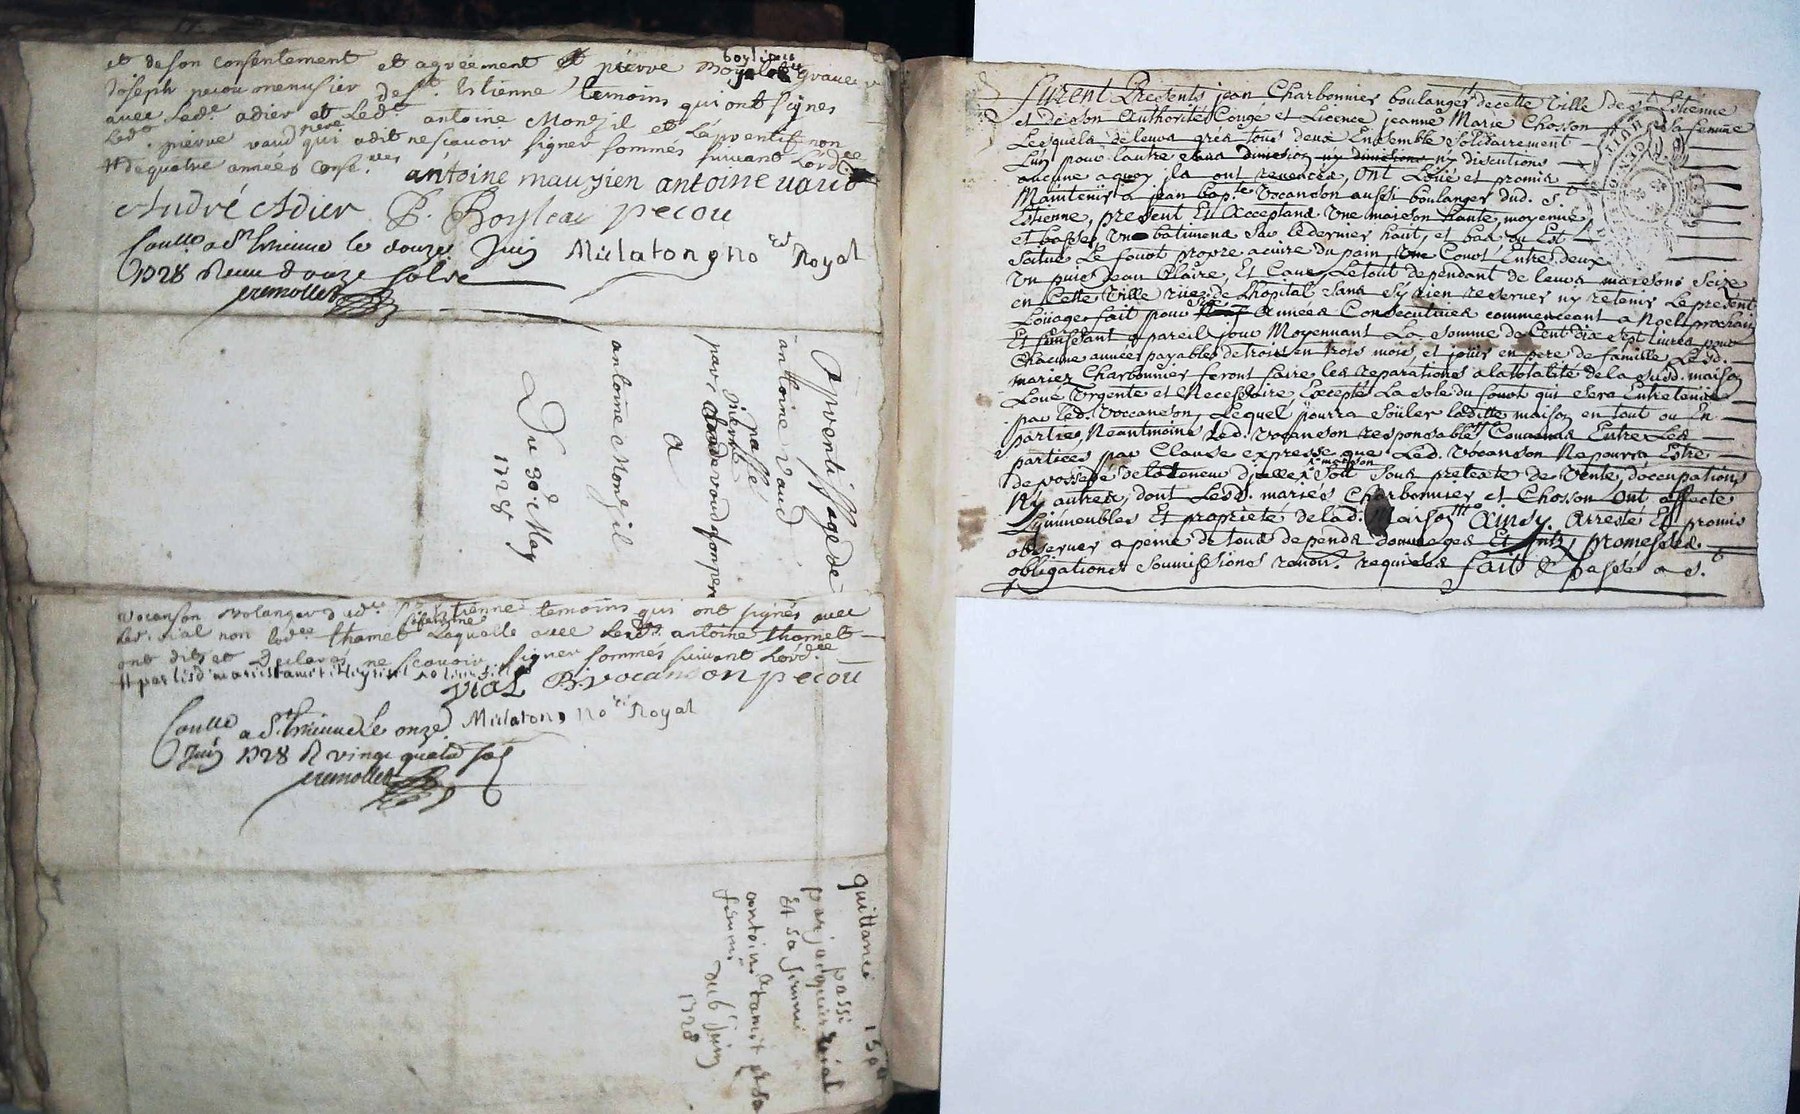 et deson consentement et agreement et pierre Boyleau graveur
boylieu
Joseph pecou menusier de st. Estienne temoins qui ont signes
avec led. adier et led. antoine Monzil et L'aprentif non
led. pierre vaud pere qui a dit ne scavoir signer sommés suivant L'ord.ce
# de quatre années conse.ves antoine mauzien antoine vaud
André Adier P. Boyleau pecou
a St Etienne le douze Juin Mulaton no.re Royal
1728 Reçu douze sols
cremollet
Aprentissage de
antoine vaud
passé
par pierre vaud son pere
a
antoine Monzil
Du 30e May
1728
vocanson Bolanger dud. St Estienne temoins qui ont signés avec
led. vial non lad. thamet sa femme Laquelle avec led. antoine thamet
ont dit et Declaré ne scavoir signer sommés suivant L'ord.ce
VIAL B. vocanson pecou
a St Etienne le onze Mulaton no.re Royal
Juin 1728 R vingt quatre sols
cremollet
quittance 150
passé
par jacques vial
Et sa femme
a
antoine thamet et sa
femme
du 6 Juin
1728
Furent Presents jean Charbonnier boulanger de cette Ville de st. Estienne
et de son Authorité Congé et Licence jeanne Marie Chosson sa femme
Lesquels de leurs grés tous deux Ensemble solidairement
L'un pour l'autre sans division ny discutions
aucune aquoy ils ont renoncés, ont Loüé et promis
Maintenir a jean bap.te Vocanson aussi boulanger dud. S.t
Estienne, present Et Acceptant Une maison haute, moyenne,
et basse, Un batiment sur le dernier haut, et bas ou Est
situé Le fourt propre acuire du pain, Une Court Entre deux
Un puis d'eau Claire, Et Cave, Le tout dependant de leurs maisons size
en Cette Ville rüe de L'hopital sans s'y rien reserver ny retenir Le present
Loüage fait pour six Années Consecutives commenceant a Noel prochain
Et finissant a pareil jour Moyennant La somme de Cent dix sept livres pour
Chacune année payables de trois en trois mois, et joüir en pere de famille Lesd.
mariez Charbonnier feront faire les reparations a la totalité de la susd. maison
Loué Urgente et Necessaire, Excepté La sole du fourt qui sera Entretenüe
par led. Voccanson, Lequel pourra soüler laditte maison en tout ou En
partie, Neantmoins Led. Vocanson responsable, Convenus Entre Les
partiees par Clause expresse que Led. Vocanson Ne pourra Estre
depossedé de la teneur d'icelle maison soit sous pretexte de Vente, d'occupations
Ny autres, dont Lesd. mariés Charbonnier et Chosson ont affecté
L'immeubles Et proprieté de lad. Maison Ainsy. Arresté Et promis
observer a peine de tous depends domages Et ints, promesses.
obligations soumissions renon. requises fait & passé a S.t